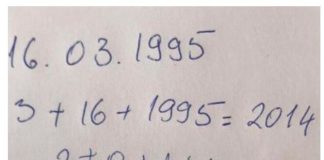 16. 03. 1995
3 + 16 + 1995 = 2014